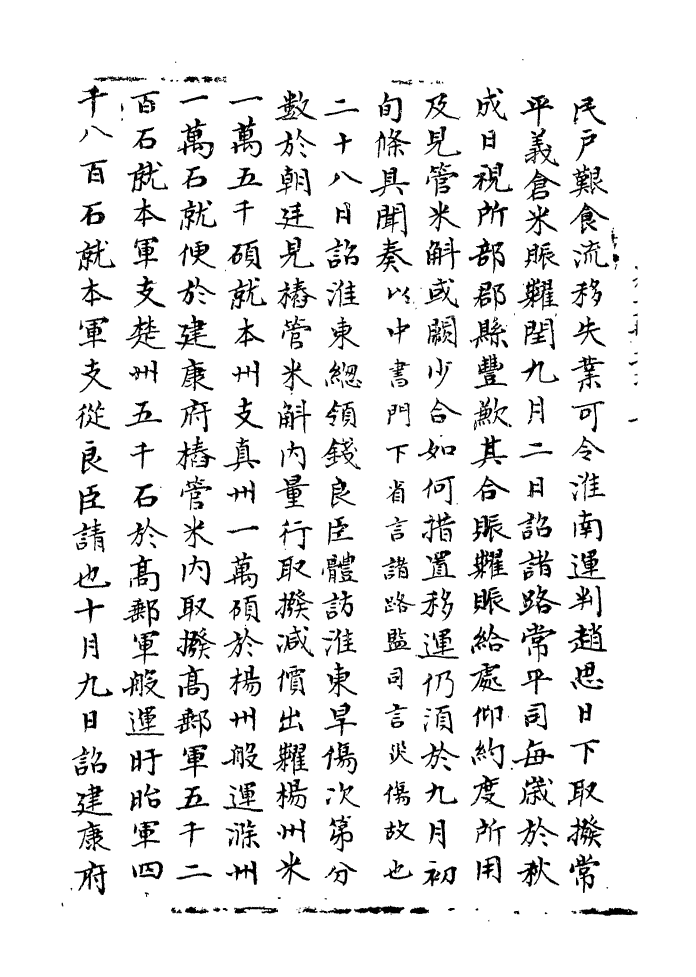 民戸艱食流移失業可令淮南運判趙思日下取撥常
平義倉米賑糶閏九月二日詔諸路常平司每歲於秋
成日視所部郡縣豐歉其合賑糶賑給處仰約度所用
及見管米斛或闕少合如何措置移運仍湏於九月初
旬條具聞奏以中書門下省言諸路監司言災傷故也
二十八日詔淮東總領錢良臣體訪淮東旱傷次第分
數於朝廷見樁管米斛内量行取撥減價出糶楊州米
一萬五千碩就本州支真州一萬碩於楊州般運滁州
一萬石就便於建康府樁管米内取撥高郵軍五千二
百石就本軍支楚州五千石於高郵軍般運盱眙軍四
千八百石就本軍支從良臣請也十月九日詔建康府